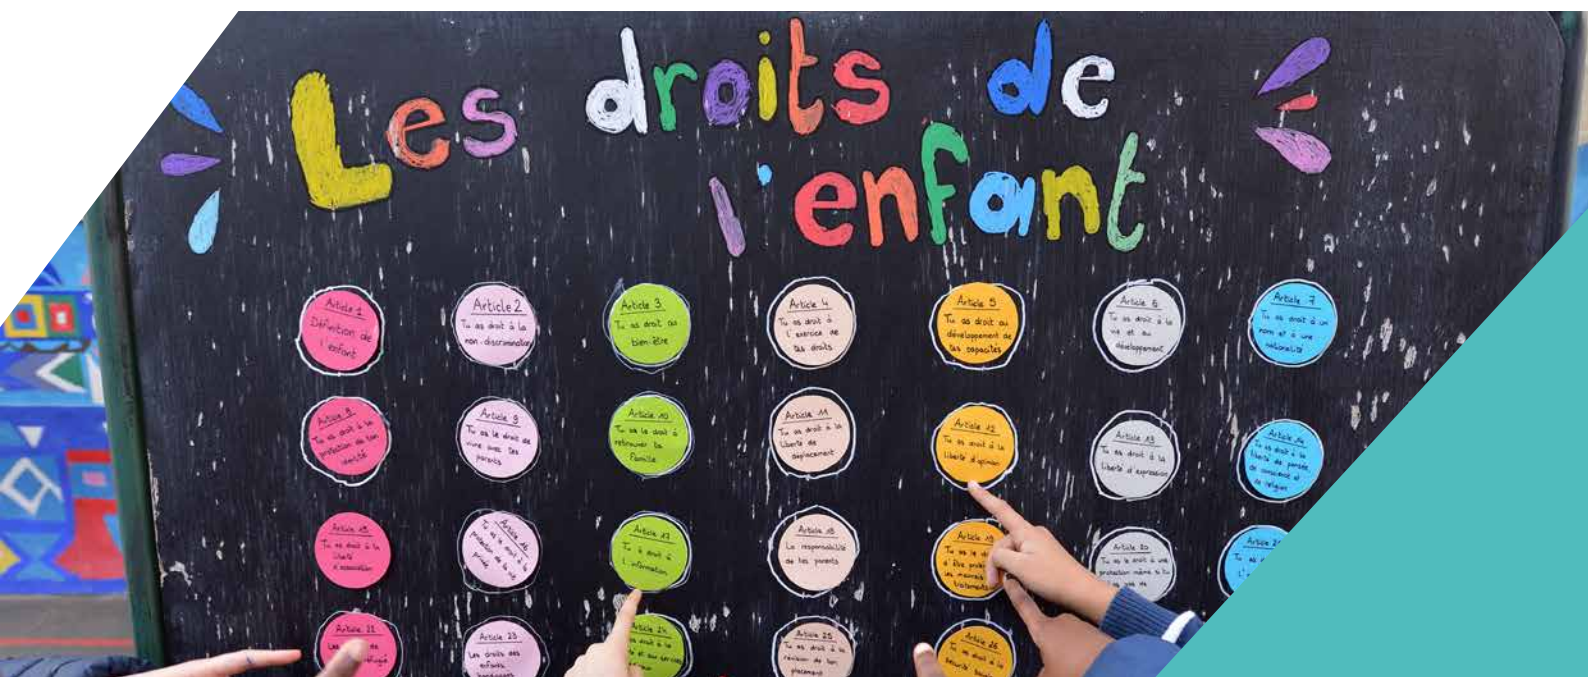 Les droits de
l'enfant
Article 1
Définition de
l'enfant
Article 2
Tu as droit à la
non-discrimination
Article 3
Tu as droit au
bien-être
Article 4
Tu as droit à
l'exercice de
tes droits
Article 5
Tu as droit au
développement de
tes capacités
Article 6
Tu as droit à la
vie et au
développement
Article 7
Tu as droit à un
nom et à une
nationalité
Article 8
Tu as droit à la
protection de ton
identité
Article 9
Tu as le droit de
vivre avec tes
parents
Article 10
Tu as le droit à
retrouver ta
famille
Article 11
Tu as droit à la
liberté de
déplacement
Article 12
Tu as droit à la
liberté d'opinion
Article 13
Tu as droit à la
liberté d'expression
Article 14
Tu as droit à la
liberté de pensée,
de conscience et
de religion
Article 15
Tu as droit à la
liberté
d'association
Article 16
Tu as le droit à la
protection de la vie
privée
Article 17
Tu à droit à
l'information
Article 18
La responsabilité
de tes parents
Article 19
Tu as le
d'être
les mauvais
traitements
Article 20
Tu as le droit à une
protection même si tu
as pas de
Article
Tu as
Article 22
Les de
réfugié
Article 23
Les droits des
enfants
handicapés
Article 24
droit à la
et aux services
Article 25
Tu as droit à la
révision de ton
placement
Article 26
Tu as droit à la
sécurité